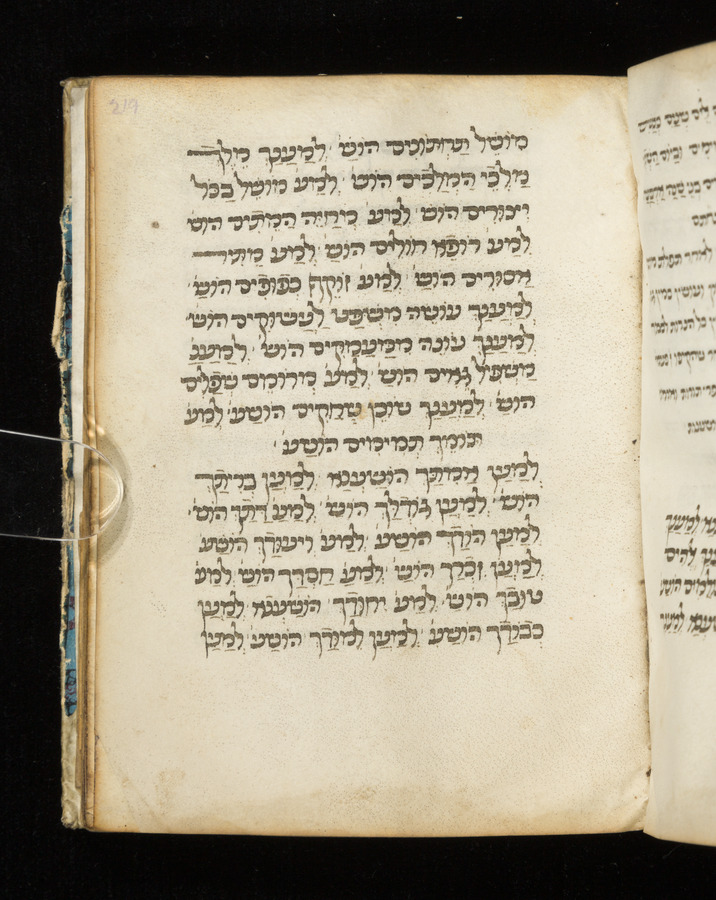 219
מושל תחתונים הוש' למענך מלך
מלכי המלכים הוש' למע' מושל בכל
יצורים הוש' למע' מיחיה המיתים הוש'
למע' רופא חולים הוש' למע' מתיר
אסורים הוש' למע' זוקף כפופים הוש'
למענך עושה משפט לעשוקים הוש'
למענך עונה ממעמקים הוש' למענ'
משפיל גאים הוש' למע' מרומם שפלים
הוש' למענך שוכן שחקים הושע' למע'
תומך תמימים הושע'
למען אמתך הושענא למען בריתך
הוש' למען גודלך הוש' למע' דתך הוש'
למען הודך הושע' למע' ויעודך הושע'
למען זכרך הוש' למע' חסדך הוש' למע'
טובך הוש' למע' יחודך הושענא למען
כבודך הושע' למען למודך הושע' למען